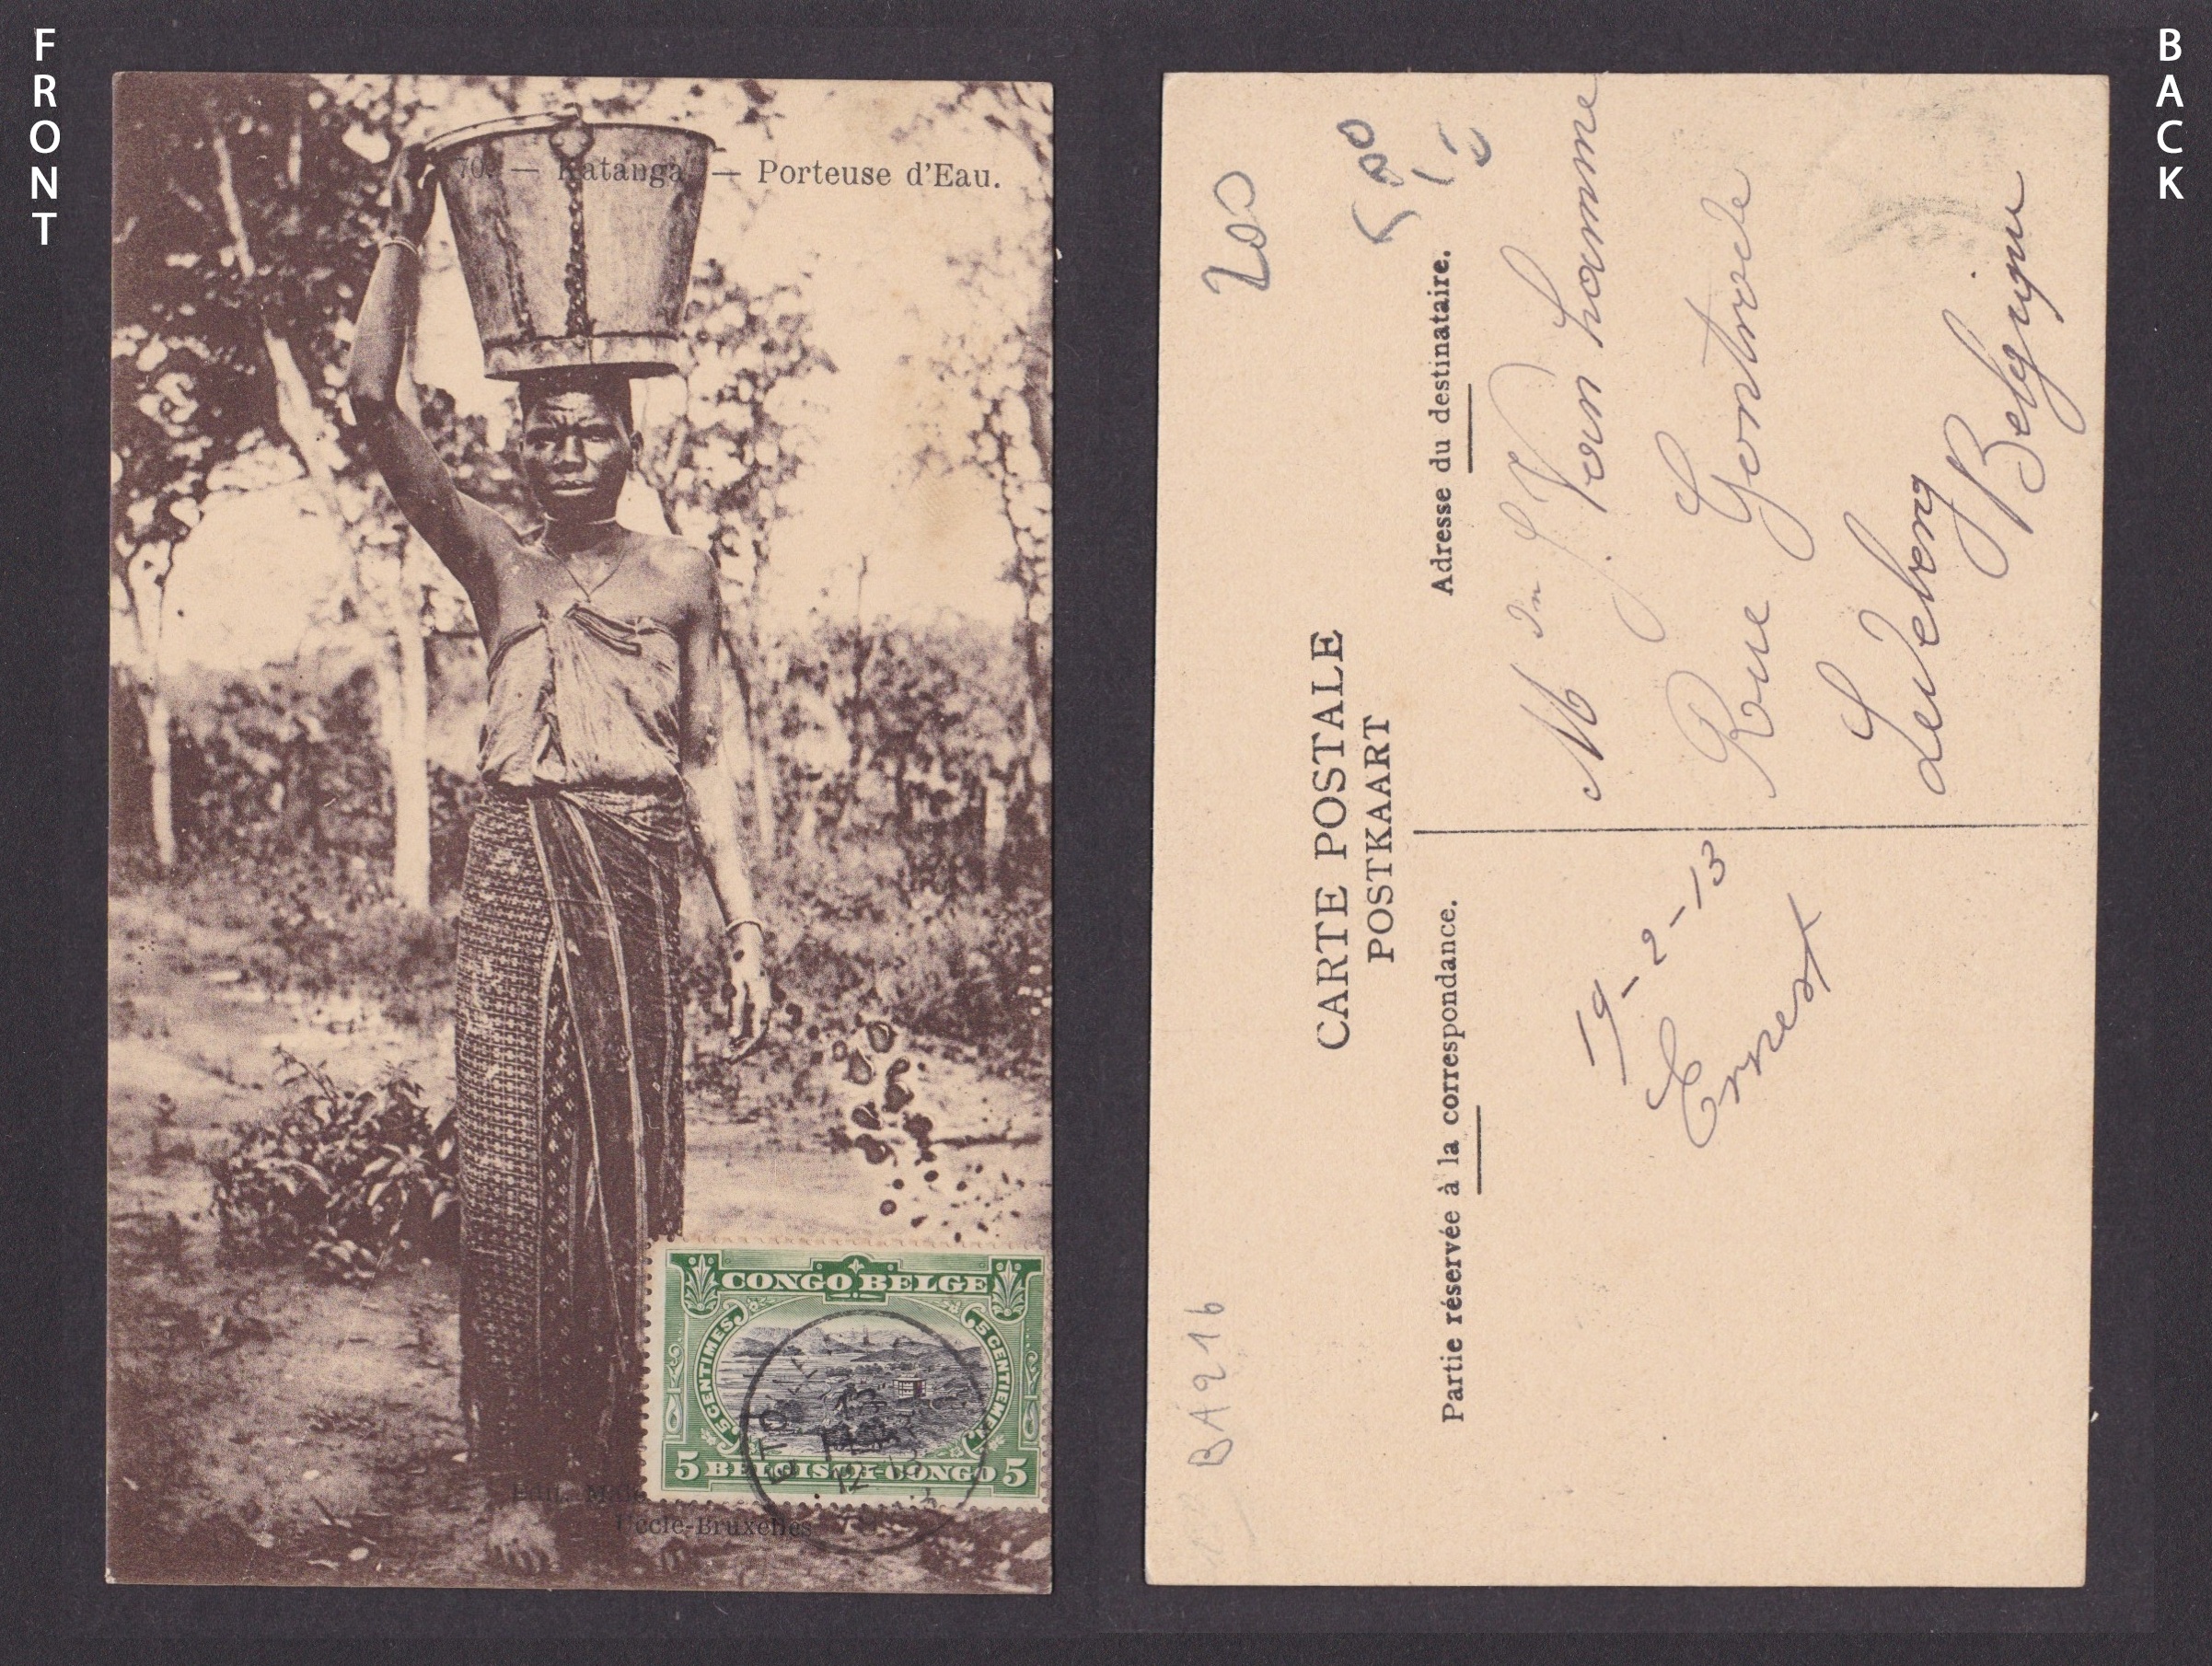 FRONT
70. — Katanga — Porteuse d'Eau.
CONGO BELGE
5 CENTIMES
5 CENTIEMEN
5 BELGISCH-CONGO 5
ETOILE
Edit.
Uccle-Bruxelles
BACK
200
CARTE POSTALE
POSTKAART
Adresse du destinataire.
M J. Van hamme
Rue Gontrode
Ledeberg
Belgique
Partie réservée à la correspondance.
19-2-13
Ernest
BA 216